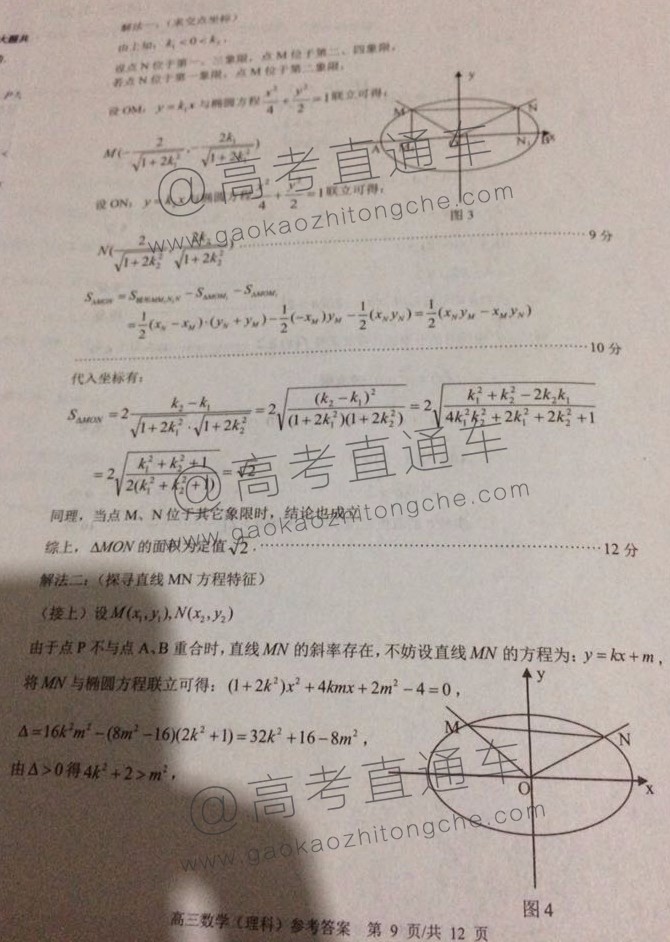 大题共
解法一:(求交点坐标)
由上知, k₁<0<k₂.
设点 N 位于第一、三象限, 点 M 位于第二、四象限,
若点 N 位于第一象限, 点 M 位于第二象限,
设 OM: y=k₁x 与椭圆方程 x²/4+y²/2=1 联立可得:
M(-2/√(1+2k₁²), -2k₁/√(1+2k₁²))
设 ON: y=k₂x 与椭圆方程 x²/4+y²/2=1 联立可得:
N(2/√(1+2k₂²), 2k₂/√(1+2k₂²)) 9 分
y
M
N
A
N₁
B
x
图 3
=½(x_N-x_M)·(y_N+y_M)-½(-x_M)y_M-½(x_N y_N)=½(x_N y_M-x_M y_N)
10 分
代入坐标有:
S_ΔMON=2(k₂-k₁)/(√(1+2k₁²)·√(1+2k₂²))=2√((k₂-k₁)²/((1+2k₁²)(1+2k₂²)))=2√((k₁²+k₂²-2k₂k₁)/(4k₁²k₂²+2k₁²+2k₂²+1))
=2√((k₁²+k₂²+1)/(2(k₁²+k₂²+1)))=√2
同理, 当点 M、N 位于其它象限时, 结论也成立
综上, ΔMON 的面积为定值√2. 12 分
解法二:(探寻直线 MN 方程特征)
(接上) 设 M(x₁,y₁),N(x₂,y₂)
由于点 P 不与点 A、B 重合时, 直线 MN 的斜率存在, 不妨设直线 MN 的方程为: y=kx+m,
将 MN 与椭圆方程联立可得: (1+2k²)x²+4kmx+2m²-4=0,
Δ=16k²m²-(8m²-16)(2k²+1)=32k²+16-8m²,
由 Δ>0 得 4k²+2>m²,
y
M
N
O
x
图 4
高三数学(理科)参考答案 第 9 页/共 12 页
@高考直通车
www.gaokaozhitongche.com
@高考直通车
www.gaokaozhitongche.com
@高考直通车
www.gaokaozhitongche.com